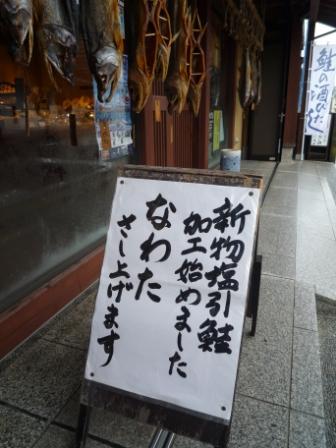 新物塩引鮭
加工始めました
なわた
さし上げます
鮭の酒びたし